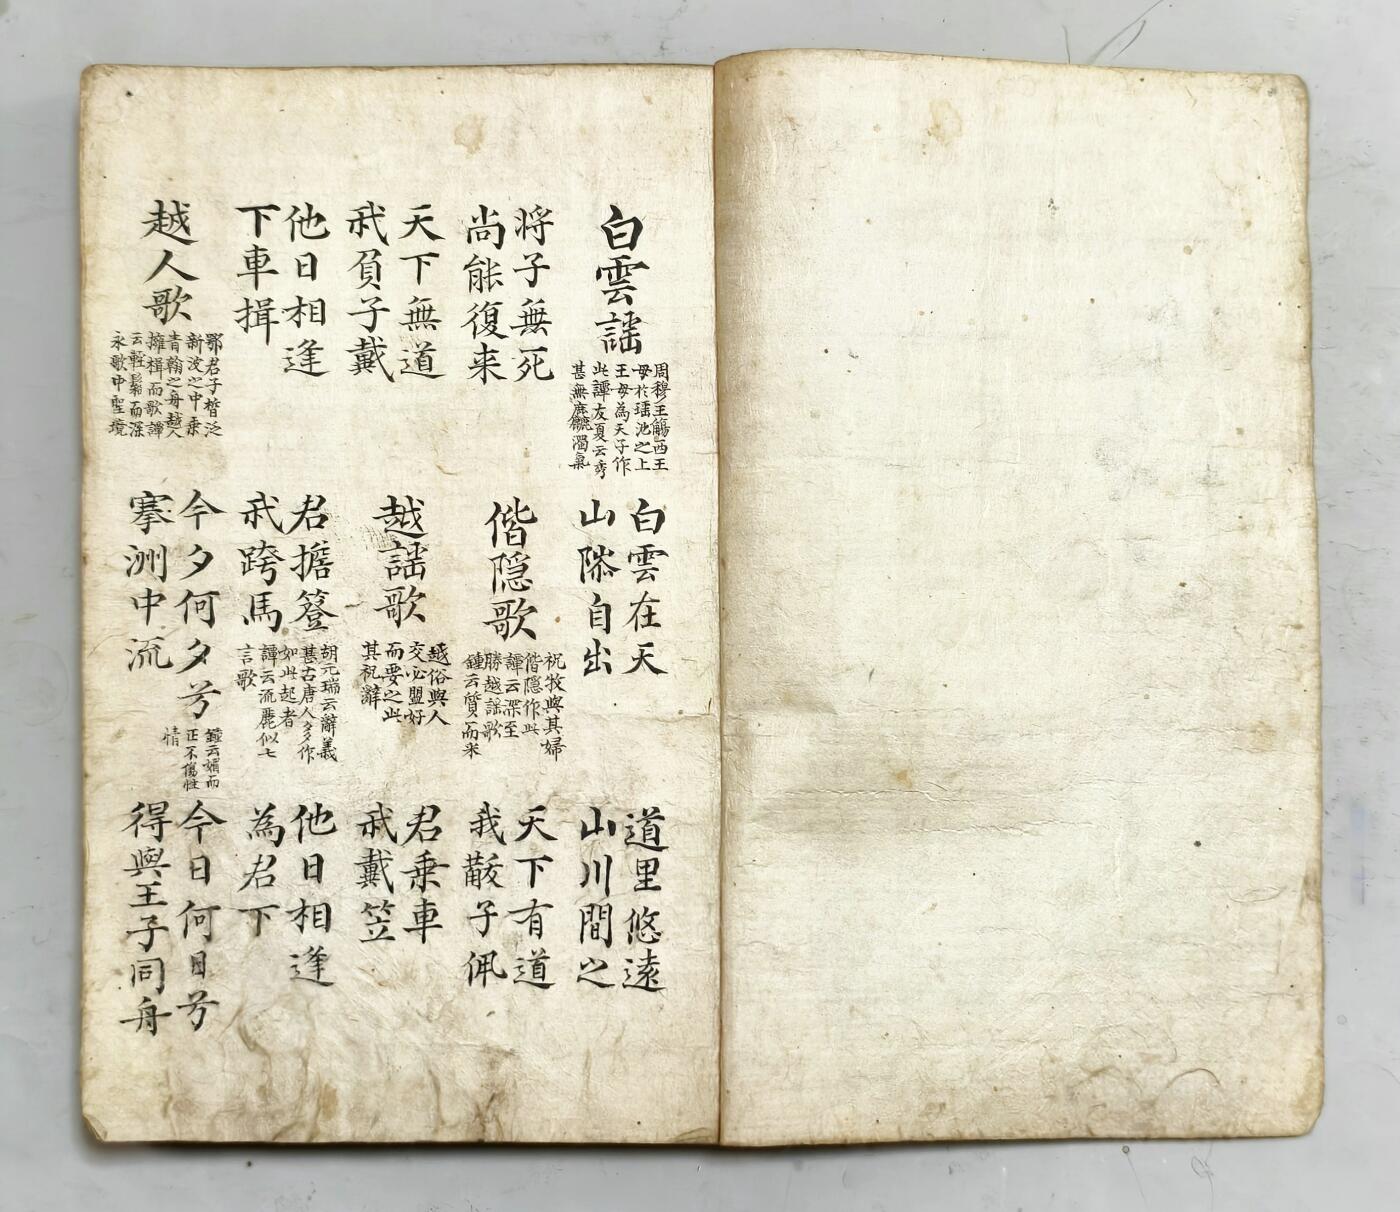 白雲謡
周穆王觴西王
母於瑶池之上
王母為天子作
此譚友夏云秀
甚無麤濁氣
白雲在天
山𨻶自出
道里悠遠
山川間之
将子無死
尚能復来
偕隠歌
祝牧與其婦
偕隠作此
譚云深至
勝越謡歌
鍾云質而采
天下有道
我黻子佩
天下無道
我負子戴
越謡歌
越俗與人
交必盟好
而要之此
其祝辭
君乗車
我戴笠
他日相逢
下車揖
君擔簦
我跨馬
胡元瑞云辭義
甚古唐人多作
如此起者
譚云流麗似七
言歌
他日相逢
為君下
越人歌
鄂君子晳泛
新波之中乗
青翰之舟越人
擁楫而歌譚
云輕鬆而深
永歌中聖境
今夕何夕兮
搴洲中流
鍾云媚而
正不傷性
情
今日何日兮
得與王子同舟